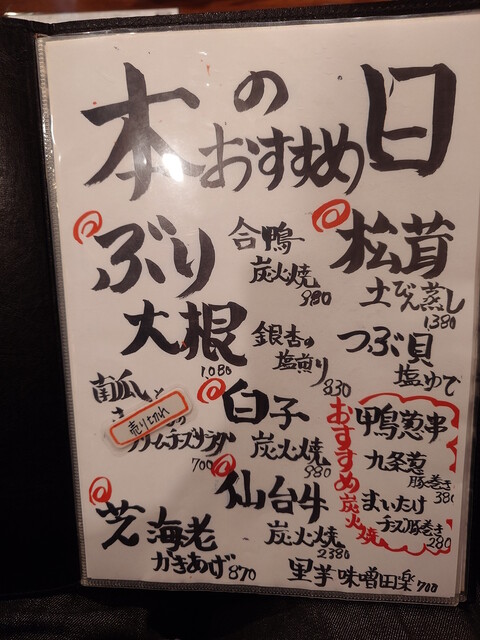 本日
のおすすめ
松茸
土びん蒸し
1380
つぶ貝
塩ゆで
おすすめ炭火焼
鴨葱串
九条葱
豚巻き
380
まいたけ
チーズ豚巻き
280
合鴨
炭火焼
980
銀杏の
塩煎り
830
白子
炭火焼
980
仙台牛
炭火焼
2380
里芋味噌田楽 700
ぶり
大根
1,080
南瓜と
クリームチーズサラダ
700
売り切れ
芝海老
かきあげ 870